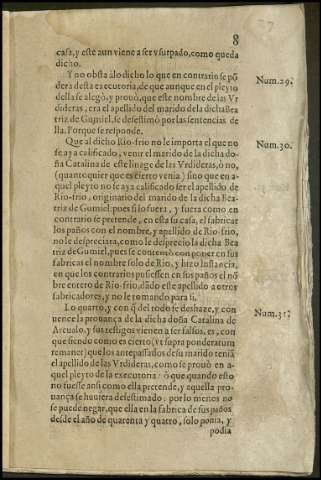 8
casa, y este aun viene a ser vsurpado, como queda
dicho.
Y no obsta álo dicho lo que en contrario se põ
dera desta executoria, de que aunque en el pleyto
della se alegò, y prouò, que este nombre de las Vr
dideras, era el apellido del marido de la dicha Bea
triz de Gumiel, se desestimò por las sentencias de
lla. Porque se responde.
Num. 29.
Que al dicho Rio-frio no le importa el que no
se aya calificado, venir el marido de la dicha do
ña Catalina de este linage de las Vrdideras, ò no,
(quanto quier que es cierto venia) sino que en a-
quel pleyto no se aya calificado ser el apellido de
Rio-frio, originario del marido de la dicha Bea-
triz de Gumiel: pues si lo fuera, y fuera como en
contrario se pretende, en esta su casa, el fabricar
los paños con el nombre, y apellido de Rio-frio,
no le despreciara, como le despreciò la dicha Bea
triz de Gumiel, pues se contentò con poner en sus
fabricas el nombre solo de Rio, y hizo instancia,
en que los contrarios pusiessen en sus paños el nõ
bre entero de Rio-frio, dãdo este apellido a otros
fabricadores, y no le tomando para si.
Num. 30.
Lo quarto, y con q̃ del todo se deshaze, y con
uence la prouança de la dicha doña Catalina de
Areualo, y sus testigos vienen a ser falsos, es, con
que siendo como es cierto (vt supra ponderatum
remanet) que los antepassados de su marido teniã
el apellido de las Vrdideras, como se prouò en a-
quel pleyto de la executoria: ò que quando esto
no fuesse ansi como ella pretende, y aquella pro-
uança se huuiera desestimado: por lo menos no
se puede negar, que ella en la fabrica de sus paños
desde el año de quarenta y quatro, solo ponia, y
Num. 31.
podia